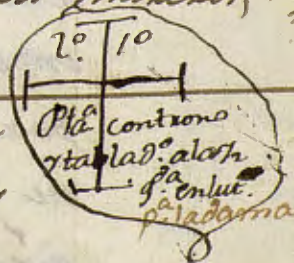 2º. 1º
Pta. controno
y tablado. alash
pa. enlut.
pa. la dama